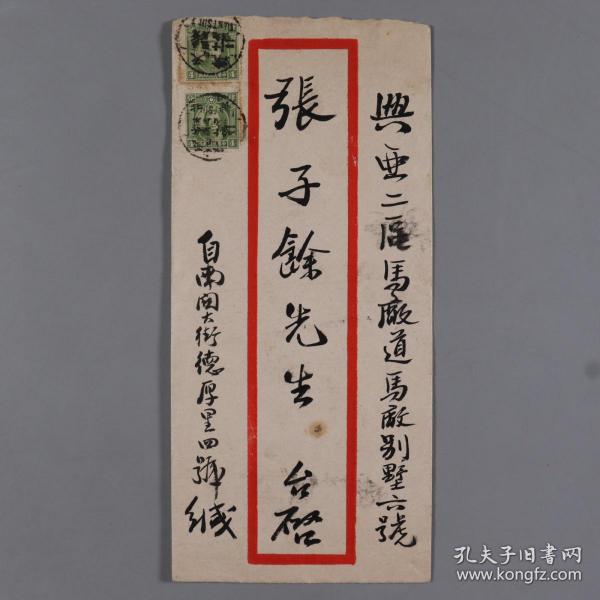 興亞二區馬廠道馬廠別墅六號
張子餘先生 台啓
自南閣大街德厚里四號緘
TIENTSIN
孔夫子旧书网
www.kongfz.com